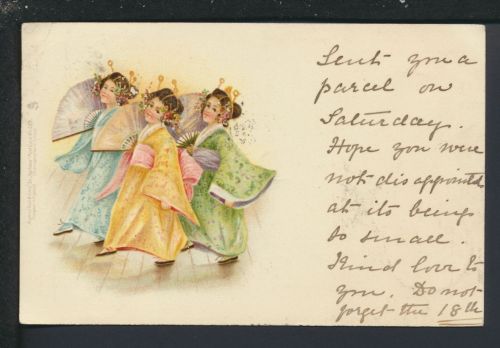 Sent you a
parcel on
Saturday.
Hope you were
not disappointed
at its being
so small.
Kind love to
you. Do not
forget the 18th